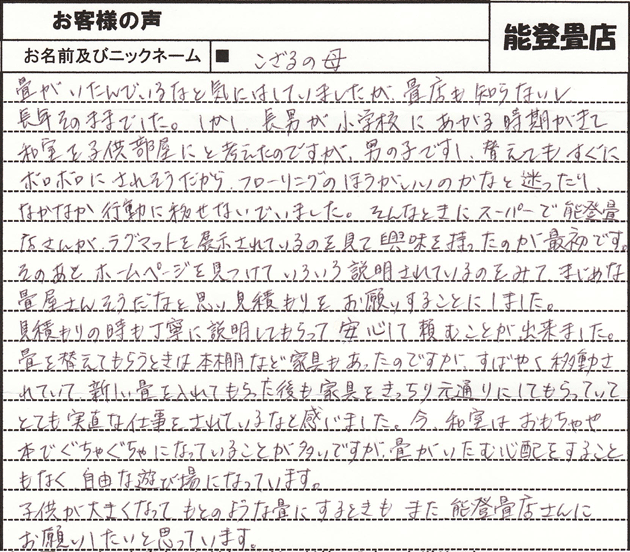 お客様の声
能登畳店
お名前及びニックネーム ■ こざるの母
畳がいたんでいるなと気にはしていましたが、畳店も知らないし
長年そのままでした。しかし 長男が小学校にあがる時期がきて
和室を子供部屋にと考えたのですが、男の子ですし、替えてもすぐに
ボロボロにされそうだから、フローリングのほうがいいのかなと迷ったり、
なかなか行動に移せないでいました。そんなときにスーパーで能登畳
店さんが、ラグマットを展示されているのを見て興味を持ったのが最初です。
そのあと ホームページを見つけて いろいろ説明されているのをみて まじめな
畳屋さんそうだなと思い見積もりを お願いすることにしました。
見積もりの時も丁寧に説明してもらって 安心して頼むことが出来ました。
畳を替えてもらうときは本棚など家具もあったのですが、すばやく移動さ
れていて、新しい畳を入れてもらった後も家具をきっちり元通りにしてもらっていて
とても実直な仕事をされているなと感じました。今、和室はおもちゃや
本でぐちゃぐちゃになっていることが多いですが、畳がいたむ心配をすること
もなく 自由な遊び場になっています。
子供が大きくなって もとのような畳にするときも また 能登畳店さんに
お願いしたいと思っています。